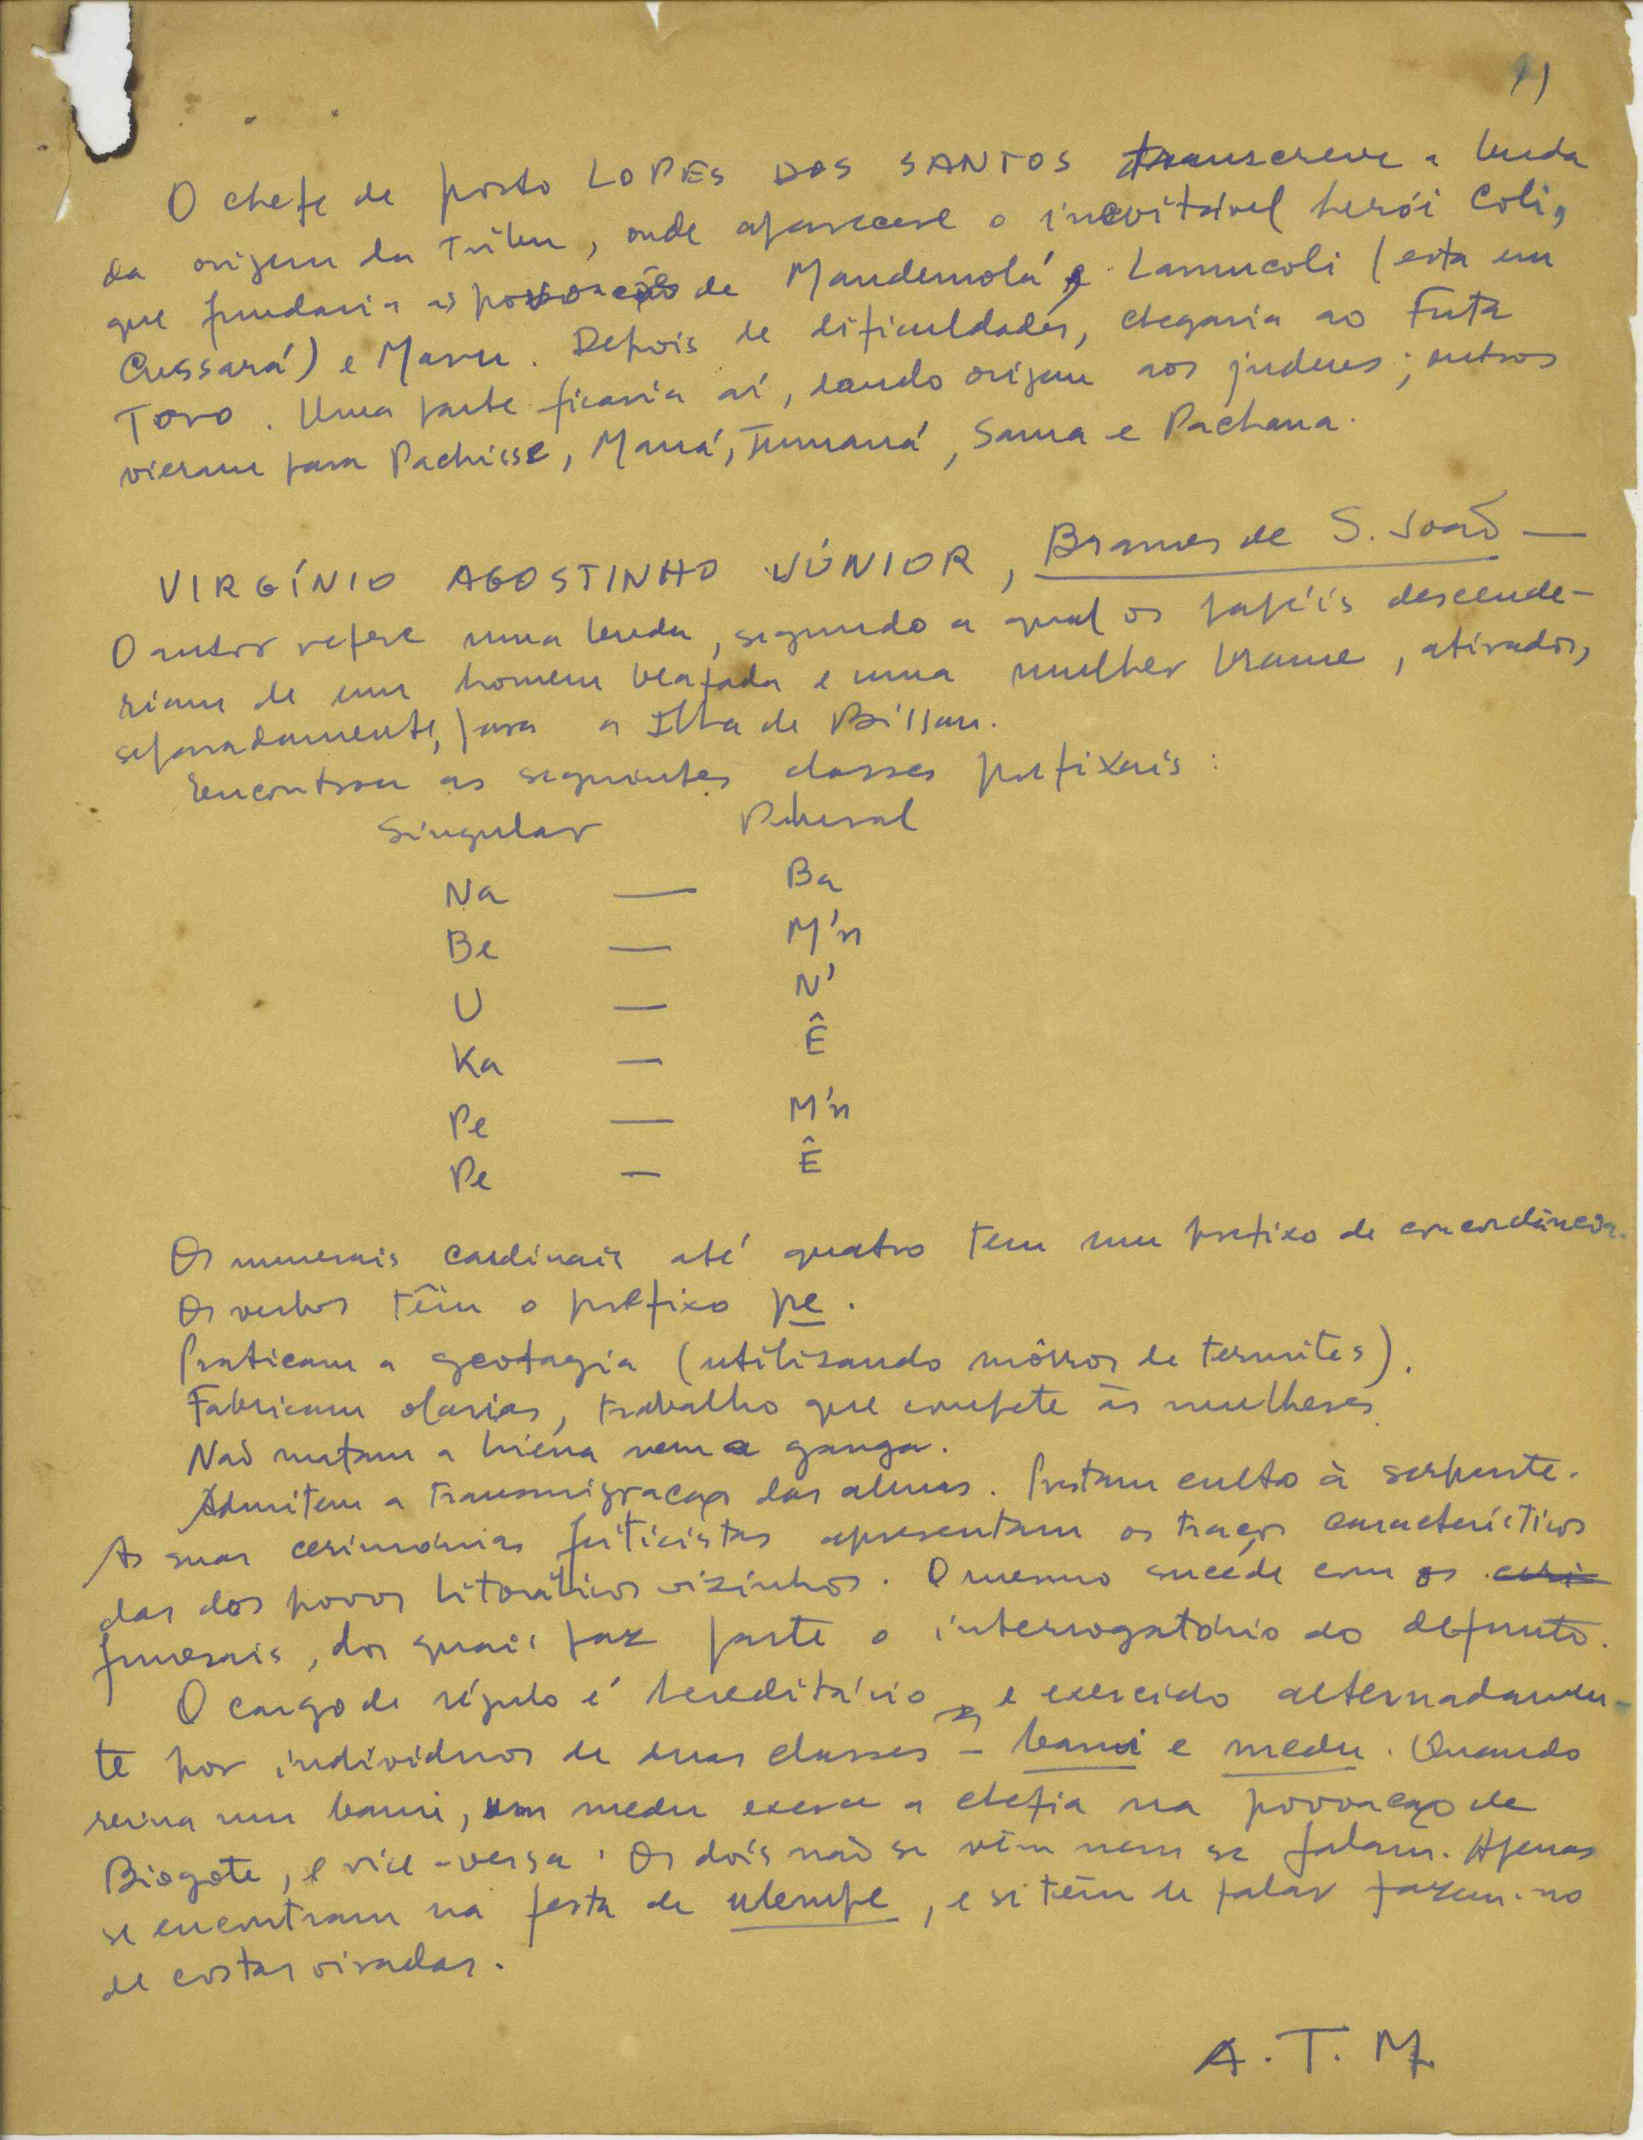 11
O chefe de posto LOPES DOS SANTOS transcreve a lenda
da origem da tribu, onde aparece o inevitável herói Coli,
que fundaria as povoações de Mandemolá, Lamucoli (esta em
Cussará) e Maru. Depois de dificuldades, chegaria ao Futa
Toro. Uma parte ficaria aí, dando origem aos judeus; outros
vieram para Pachisse, Maná, Tumaná, Sama e Pachana.
VIRGÍNIO AGOSTINHO JÚNIOR, Brames de S. João —
O autor refere uma lenda, segundo a qual os papéis descende-
riam de um homem beafada e uma mulher brame, atirados,
separadamente, para a Ilha de Bissau.
Encontrou as seguintes classes prefixais:
Singular Plural
Na — Ba
Be — M'n
U — N'
Ka — Ê
Pe — M'n
Pe — Ê
Os numerais cardinais até quatro tem um prefixo de concordância.
Os verbos têm o prefixo pe.
Praticam a geofagia (utilizando môrros de termites).
Fabricam olarias, trabalho que compete às mulheres
Não matam a hiena nem a ganga.
Admitem a transmigração das almas. Prestam culto à serpente.
As suas cerimónias feiticistas apresentam os traços característicos
das dos povos litorálicos vizinhos. O mesmo sucede com os
funerais, dos quais faz parte o interrogatório do defunto.
O cargo de régulo é hereditário e exercido alternadamen-
te por indivíduos de duas classes – bami e medu. Quando
reina um bami, um medu exerce a chefia na povoação de
Biogote, e vice-versa. Os dois não se vêm nem se falam. Apenas
se encontram na festa de ulempe, e si têm de falar fazem-no
de costas viradas.
A. T. M.